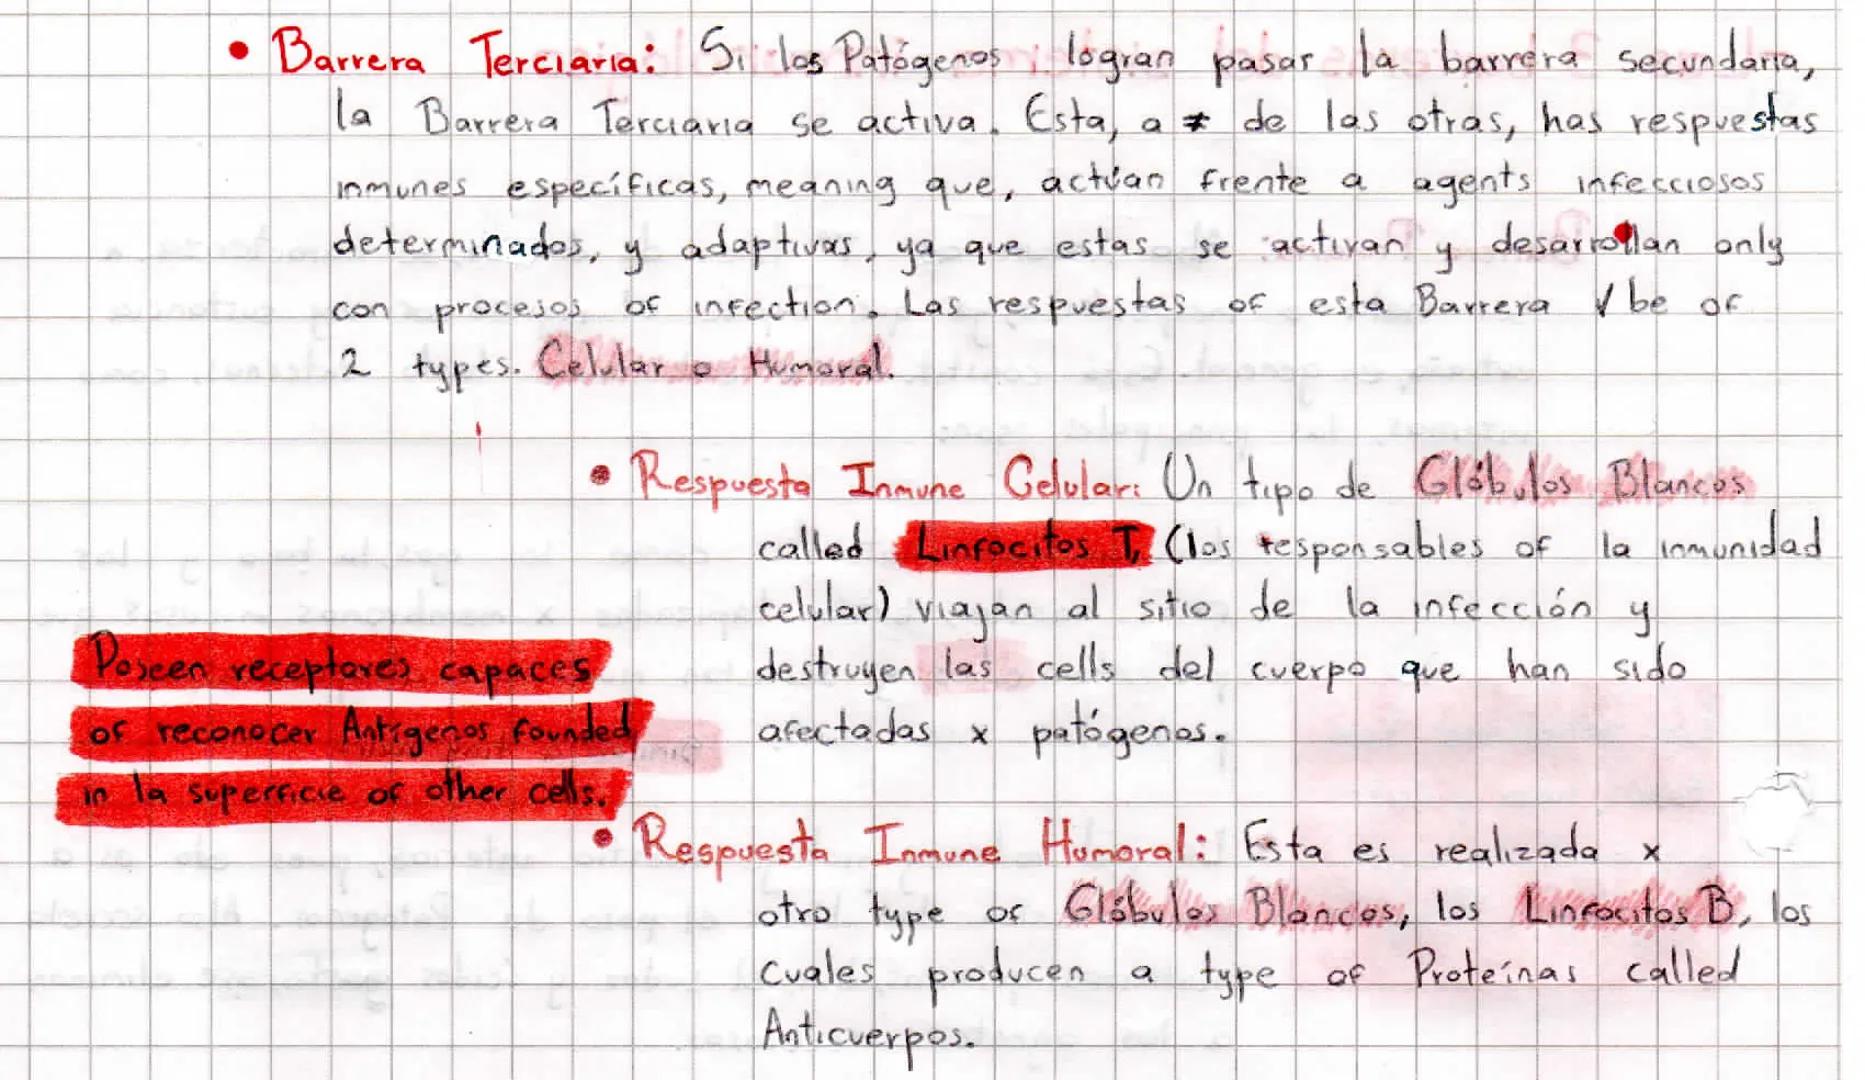 • Barrera Terciaria: Si los Patógenos logran pasar la barrera secundaria,
la Barrera Terciaria se activa. Esta, a ≠ de las otras, has respuestas
inmunes específicas, meaning que, actúan frente a agents infecciosos
determinados, y adaptivas, ya que estas se activan y desarrollan only
con procesos of infection. Las respuestas of esta Barrera √ be of
2 types. Celular o Humoral.
• Respuesta Inmune Celular: Un tipo de Glóbulos Blancos
called Linfocitos T, (los responsables of la inmunidad
celular) viajan al sitio de la infección y
destruyen las cells del cuerpo que han sido
afectadas x patógenos.
Poseen receptores capaces
of reconocer Antígenos founded
in la superficie of other cells.
• Respuesta Inmune Humoral: Esta es realizada x
otro type of Glóbulos Blancos, los Linfocitos B, los
cuales producen a type of Proteínas called
Anticuerpos.